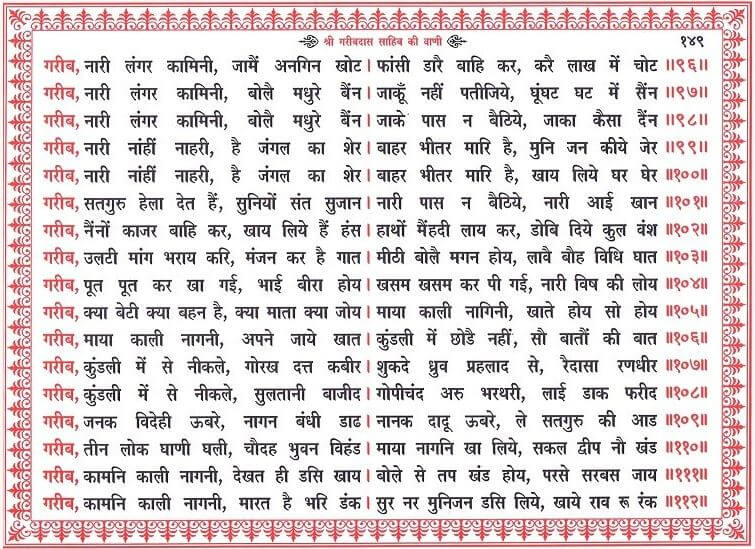 श्री गरीबदास साहिब की वाणी १४९
गरीब, नारी लंगर कामिनी, जामैं अनगिन खोट। फांसी डारै बाहि कर, करै लाख में चोट ॥९६॥
गरीब, नारी लंगर कामिनी, बोलै मधुरे बैंन। जाकूँ नहीं पतीजिये, घूंघट घट में सैंन ॥९७॥
गरीब, नारी लंगर कामिनी, बोलै मधुरे बैंन। जाके पास न बैठिये, जाका कैसा दैंन ॥९८॥
गरीब, नारी नांहीं नाहरी, है जंगल का शेर। बाहर भीतर मारि है, मुनि जन कीये जेर ॥९९॥
गरीब, नारी नांहीं नाहरी, है जंगल का शेर। बाहर भीतर मारि है, खाय लिये घर घेर ॥१००॥
गरीब, सतगुरु हेला देत हैं, सुनियों संत सुजान। नारी पास न बैठिये, नारी आई खान ॥१०१॥
गरीब, नैंनों काजर बाहि कर, खाय लिये हैं हंस। हाथों मैंहदी लाय कर, डोबि दिये कुल वंश ॥१०२॥
गरीब, उलटी मांग भराय करि, मंजन कर है गात। मीठी बोलै मगन होय, लावै बौह विधि घात ॥१०३॥
गरीब, पूत पूत कर खा गई, भाई बीरा होय। खसम खसम कर पी गई, नारी विष की लोय ॥१०४॥
गरीब, क्या बेटी क्या बहन है, क्या माता क्या जोय। माया काली नागिनी, खाते होय सो होय ॥१०५॥
गरीब, माया काली नागनी, अपने जाये खात। कुंडली में छोडै नहीं, सौ बातौं की बात ॥१०६॥
गरीब, कुंडली में से नीकले, गोरख दत्त कबीर। शुकदे ध्रुव प्रहलाद से, रैदासा रणधीर ॥१०७॥
गरीब, कुंडली में से नीकले, सुलतानी बाजीद। गोपीचंद अरु भरथरी, लाई डाक फरीद ॥१०८॥
गरीब, जनक विदेही ऊबरे, नागन बंधी डाढ। नानक दादू ऊबरे, ले सतगुरु की आड ॥१०९॥
गरीब, तीन लोक घाणी घली, चौदह भुवन विहंड। माया नागनि खा लिये, सकल द्वीप नौ खंड ॥११०॥
गरीब, कामनि काली नागनी, देखत ही डसि खाय। बोले से तप खंड होय, परसे सरबस जाय ॥१११॥
गरीब, कामनि काली नागनी, मारत है भरि डंक। सुर नर मुनिजन डसि लिये, खाये राव रू रंक ॥११२॥